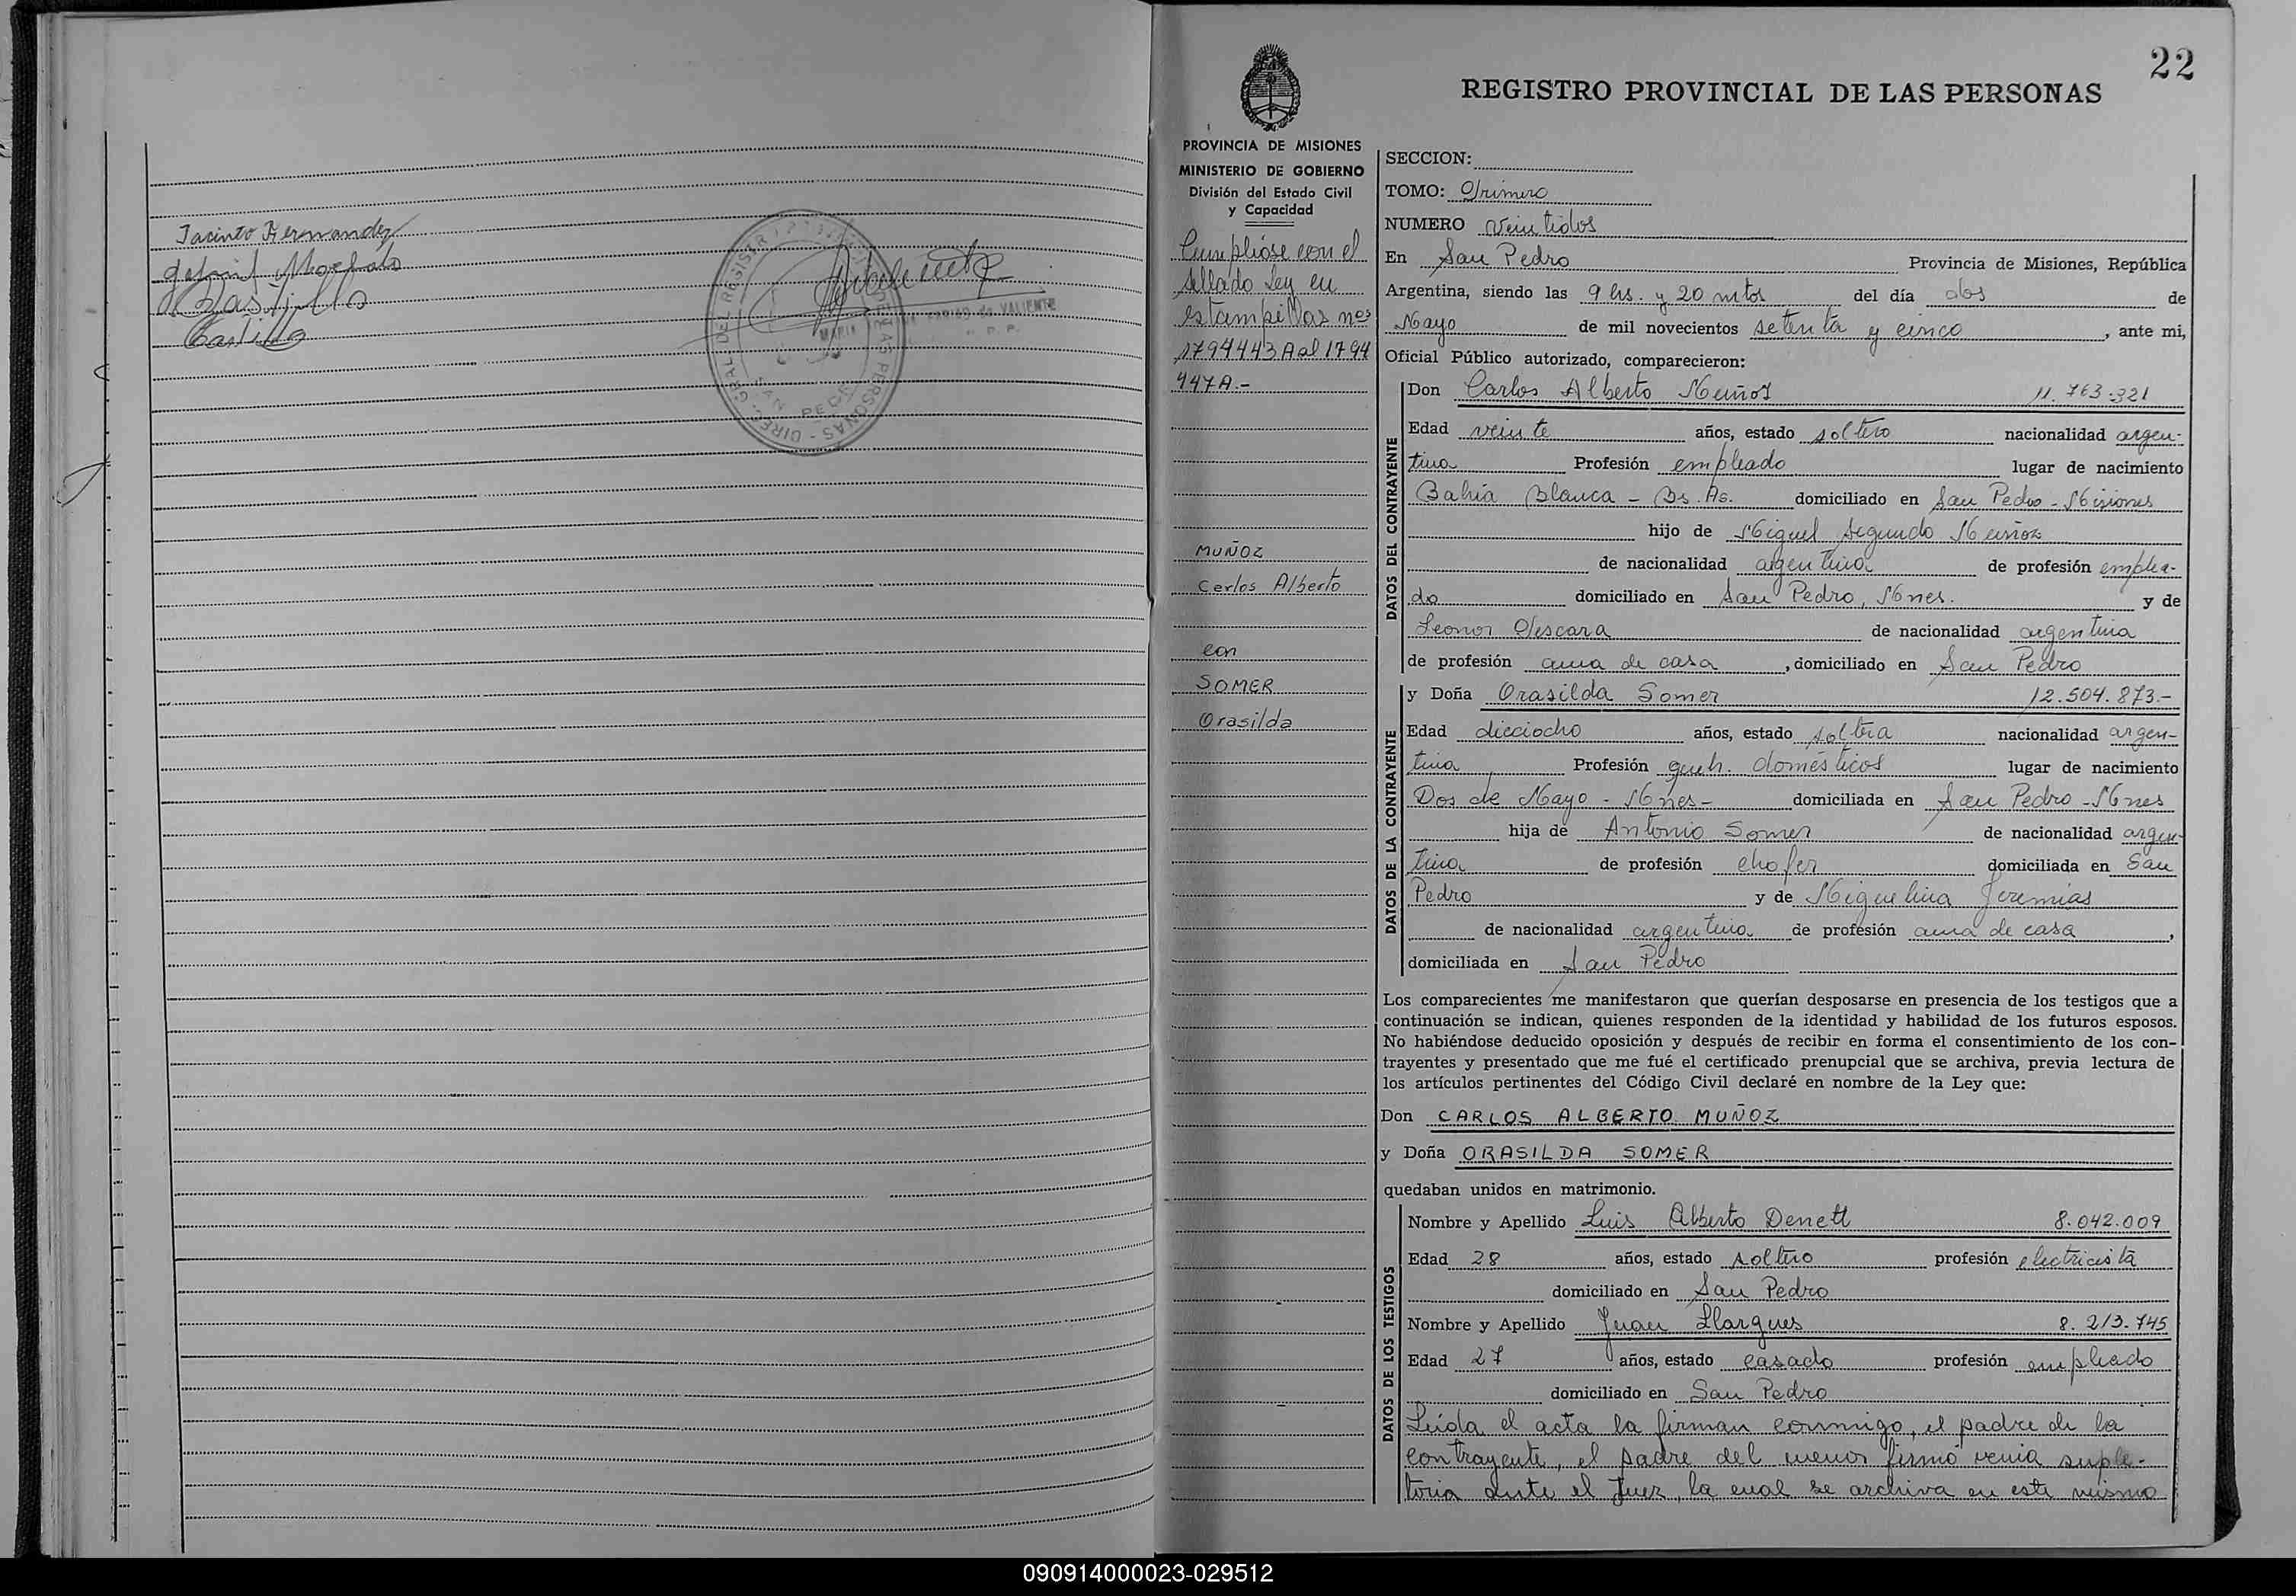 Jacinto Hernandez
Castillo
MARIA
de VALIENTE
DIREC. GRAL. DEL REGISTR
DE LAS PERSONAS
SAN PEDRO
22
REGISTRO PROVINCIAL DE LAS PERSONAS
PROVINCIA DE MISIONES
MINISTERIO DE GOBIERNO
División del Estado Civil
y Capacidad
Cumplióse con el
sellado Ley en
estampillas nos
1794443A al 1794
447A.-
MUÑOZ
Carlos Alberto
con
SOMER
Orasilda
SECCION:
TOMO: Primero
NUMERO Veintidos
En San Pedro Provincia de Misiones, República
Argentina, siendo las 9 hs. y 20 mtos del día dos de
Mayo de mil novecientos setenta y cinco, ante mi,
Oficial Público autorizado, comparecieron:
DATOS DEL CONTRAYENTE
Don Carlos Alberto Muñoz 11.763.321
Edad veinte años, estado soltero nacionalidad argen-
tina Profesión empleado lugar de nacimiento
Bahía Blanca - Bs. As. domiciliado en San Pedro - Misiones
hijo de Miguel Segundo Muñoz
de nacionalidad argentina de profesión emplea-
do domiciliado en San Pedro, Mnes. y de
Leonor Pescara de nacionalidad argentina
de profesión ama de casa, domiciliado en San Pedro
DATOS DE LA CONTRAYENTE
y Doña Orasilda Somer 12.504.873.-
Edad dieciocho años, estado soltera nacionalidad argen-
tina Profesión queh. domésticos lugar de nacimiento
Dos de Mayo - Mnes - domiciliada en San Pedro - Mnes
hija de Antonio Somer de nacionalidad argen-
tina de profesión chofer domiciliada en San
Pedro y de Miguelina Jeremías
de nacionalidad argentina de profesión ama de casa,
domiciliada en San Pedro
Los comparecientes me manifestaron que querían desposarse en presencia de los testigos que a
continuación se indican, quienes responden de la identidad y habilidad de los futuros esposos.
No habiéndose deducido oposición y después de recibir en forma el consentimiento de los con-
trayentes y presentado que me fué el certificado prenupcial que se archiva, previa lectura de
los artículos pertinentes del Código Civil declaré en nombre de la Ley que:
Don CARLOS ALBERTO MUÑOZ
y Doña ORASILDA SOMER
quedaban unidos en matrimonio.
DATOS DE LOS TESTIGOS
Nombre y Apellido Luis Alberto Denett 8.042.009
Edad 28 años, estado soltero profesión electricista
domiciliado en San Pedro
Nombre y Apellido Juan Llargues 8.213.745
Edad 27 años, estado casado profesión empleado
domiciliado en San Pedro
Leída el acta la firman conmigo, el padre de la
contrayente, el padre del menor firmó venia suple-
toria ante el Juez, la cual se archiva en este mismo
090914000023-029512